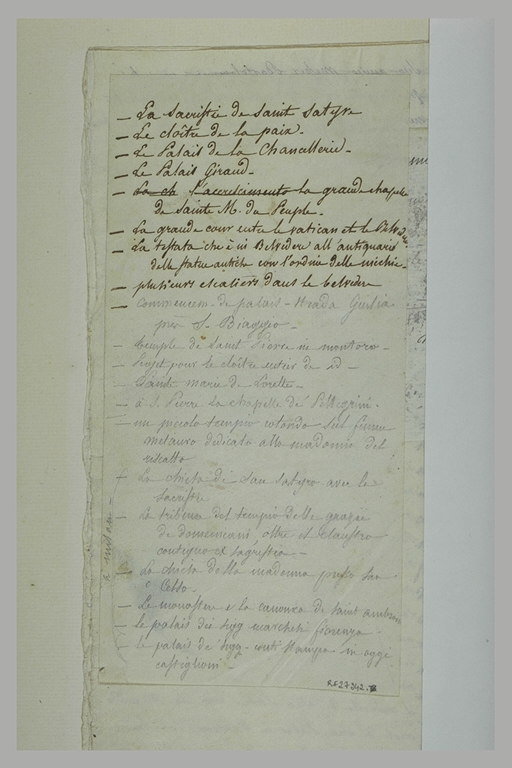 — La Sacristie de Saint Satyre
— Le cloître de la paix.
— Le Palais de la Chancellerie.
— Le Palais Giraud.
— La ch l'accrescimento la grande chapelle
de Sainte M. du Peuple.
— La grande cour entre le Vatican et le Belvedere
— La testata che è in Belvedere all'antiquario
delle statue antiche con l'ordine delle nicchie
— plusieurs escaliers dans le belvedere
— commencem. de palais - strada Giulia
S. Biaggio -
— temple de Saint Pierre in montoro -
— projet pour le cloître entier de id -
— Sainte marie de Lorette -
— à S. Pierre la chapelle de Pellegrini.
— un piccolo tempio rotondo sul fiume
metauro dedicato alla madonna del
riscatto
— La chiesa di San Satyro avec la
sacristie
— La tribuna del tempio delle grazie
de domenicani, oltre il claustro
contiguo et sagrestia —
— La chiesa della madonna presso San
Celso.
— Le monastere e la canonica de Saint ambroi
— le palais dei Sigg marchesi
— le palais de Sigg - conti Stampa in oggi
castiglioni
a milan
RF27342.